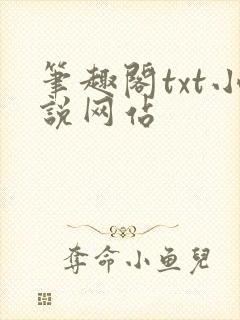 筆趣閣txt小
説网佔
奪命小鱼兒